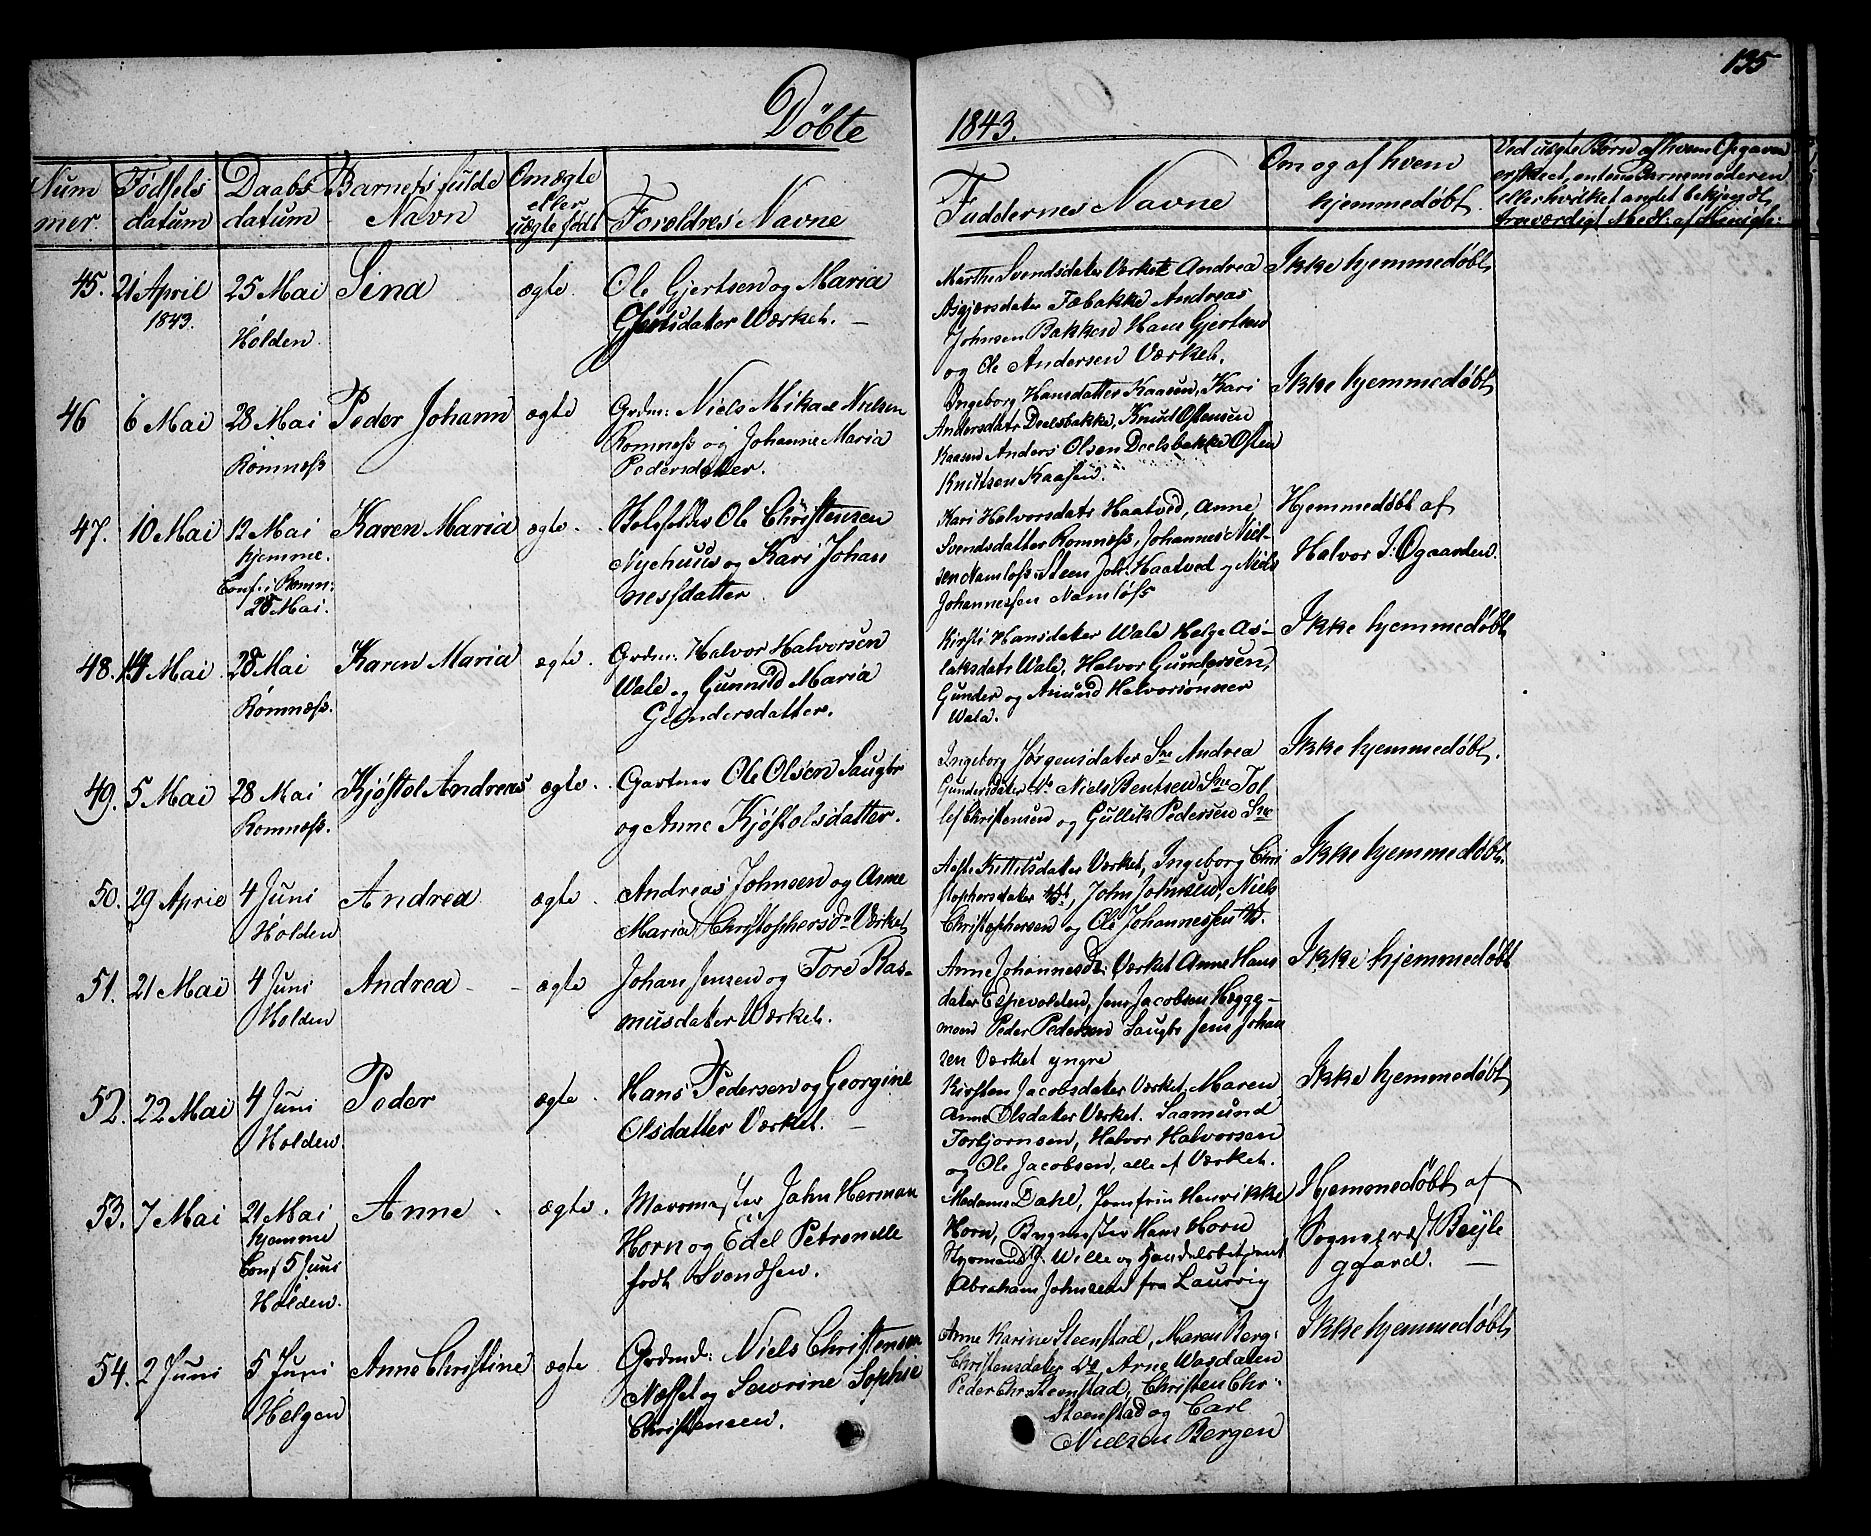 135
Døbte 1843.
Nummer. Fødsels datum Daabs datum Barnets fulde Navn Om ægte eller uægte født Forældres Navne
Faddernes Navne Om og af hvem hjemmedøbt.
Ved uægte Børn af hvem Opgaven
er skeet, enten Barnemoderen
eller hvilket andet bekjendt,
troværdigt Medl: af Menigh:
45. 21 April 25 Mai Sina ægte Ole Gjertsen og Maria
1843. Holden Gjertsdater Værket. —
Marthe Svendsdater Værket Andrea
Asgjersdater Fæbakke Andreas
Johnsen Bakken Hans Gjertsen
og Ole Andersen Værket.
Ikke hjemmedøbt
46 6 Mai 28 Mai Peder Johann ægte Grdm: Niels Mikael Nielsen
Romnæss Romness og Johanne Maria
Pedersdatter.
Ingeborg Hansdatter Kaasen, Kari
Andersdatr Doelsbakke, Knud Ostensen
Kaasen Anders Olsen Doelsbakke Osten
Knutsen Kaasen.
Ikke hjemmedøbt
47. 10 Mai 12 Mai Karen Maria ægte. Ole Christensen
hjemme. Nyehuus og Kari Johan
Conf. i Romn: nessdatter
28 Mai.
Kari Halvorsdatr Haatved, Anne
Svendsdatter Romness, Johannes Niel-
sen Namløss Steen Joh: Haatved og Niels
Johannessen Namløss
Hjemmedøbt af
Halvor J: Øgaarden.
48. 14 Mai 28 Mai Karen Maria ægte. Grdm: Halvor Halvorsen
Romnæss. Wala og Gunnild Maria
Gundersdatter.
Kirsti Hansdater Wala Helge As-
laksdatr Wala, Halvor Gundersen,
Gunder og Amund Halvorsønner
Wala.
Ikke hjemmedøbt
49. 5 Mai 28 Mai Kjøstol Andreas ægte. Gartner Ole Olsen Saugbr
Romness. og Anne Kjøstolsdatter.
Ingeborg Jørgensdater Sre Andrea
Gundersdater Do Niels Bentsen Sre Tol
lef Christensen og Gullik Pedersen Sre
Ikke hjemmedøbt.
50. 29 April 4 Juni Andrea ægte. Andreas Johnsen og Anne
Holden Maria Christophersdr Værket
Aaste Kittilsdater Værket, Ingeborg Chri
stophersdater ibt, John Johnsen, Niels
Christophersen og Ole Johannessen
Ikke hjemmedøbt.
51. 21 Mai 4 Juni Andrea ægte Johan Jensen og Tore Ras-
Holden musdater Værket.
Anne Johannesd: Værket Anne Hans
dater Espevolden, Jens Jacobsen Hegg-
moen Peder Pedersen Saugbr Jens Johan
sen Værket yngre
Ikke hjemmedøbt
52. 22 Mai 4 Juni Peder ægte. Hans Pedersen og Georgine
Holden. Olsdatter Værket. —
Kirsten Jacobsdater Værket, Maren
Anne Olsdater Værket. Saamund
Torbjornsen, Halvor Halvorsen
og Ole Jacobsen, alle af Værket.
Ikke hjemmedøbt,
53. 7 Mai 21 Mai Anne ægte. John Herman
hjemme Horn og Edel Petronelle
Conf 5 Juni født Svendsen.
Holden.
Madame Dahl, Jomfru Henrikke
Horn, Bygmester Hans Horn
J. Wille og Handelsbetjent
Abraham Johnsen fra Laurvig
Hjemmedøbt af
Sogneprest Beyle
ggaard. —
54. 2 Juni 5 Juni Anne Christine ægte Grdmd: Niels Christensen
Helgen Næsset og Sevrine Sophie
Christensen.
Anne Karine Steenstad, Maren Berg:
Christensdater Do Arne Wasdalen
Peder Chr Steenstad, Christen Chr:
Steenstad og Carl
Nielsen Bergen
Ikke hjemmedøbt